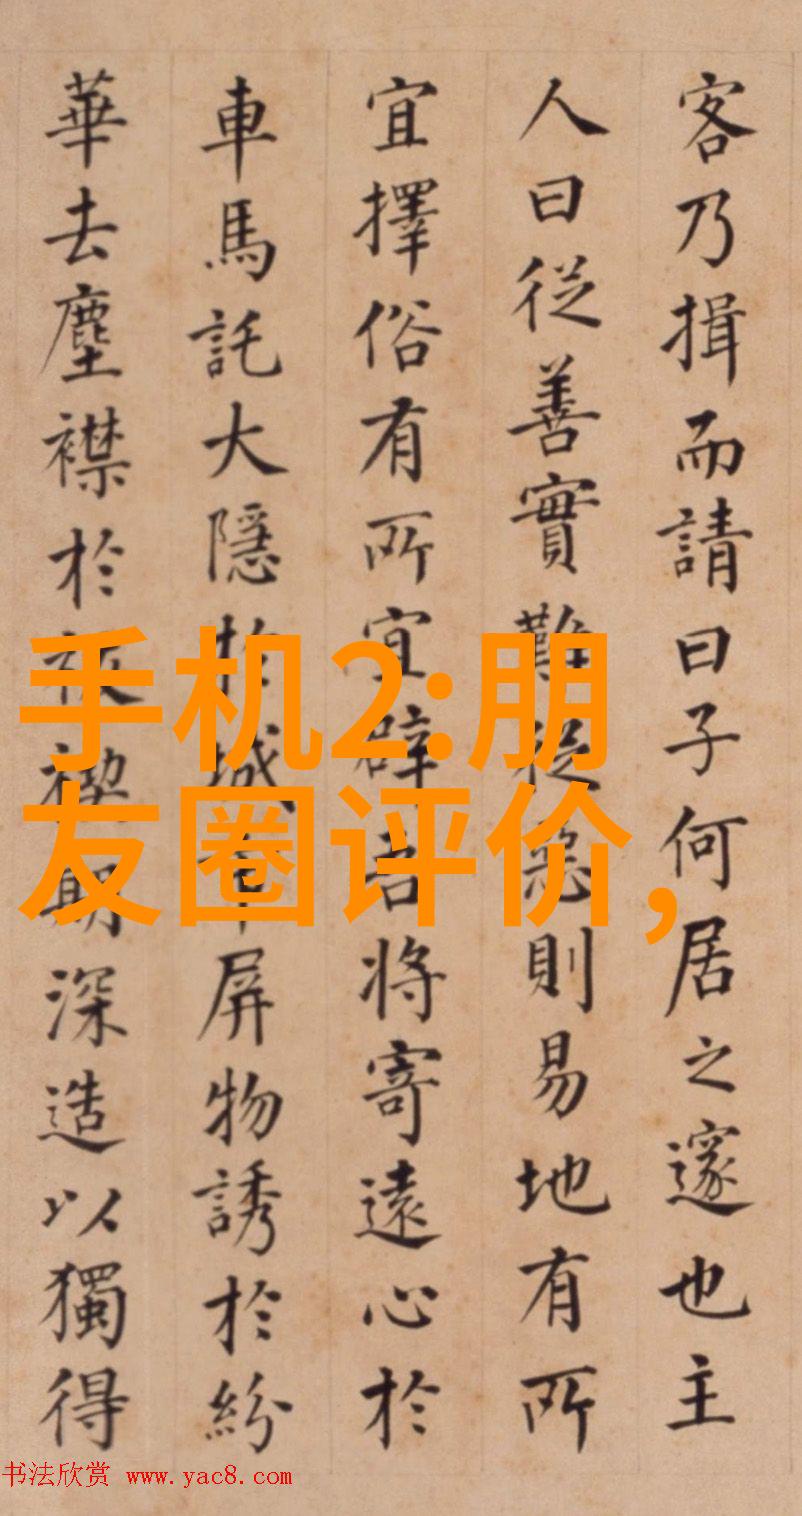 客乃揖而請曰子何居之邃也主
人曰從善實難從惡則易地有所
宜擇俗有所宜辟吾將寄遠心於
車馬託大隱於城市屏物誘於紛
華去塵襟於祓禊期深造以獨得
手机2:朋
友圈评价,
书法欣赏 www.yac8.com